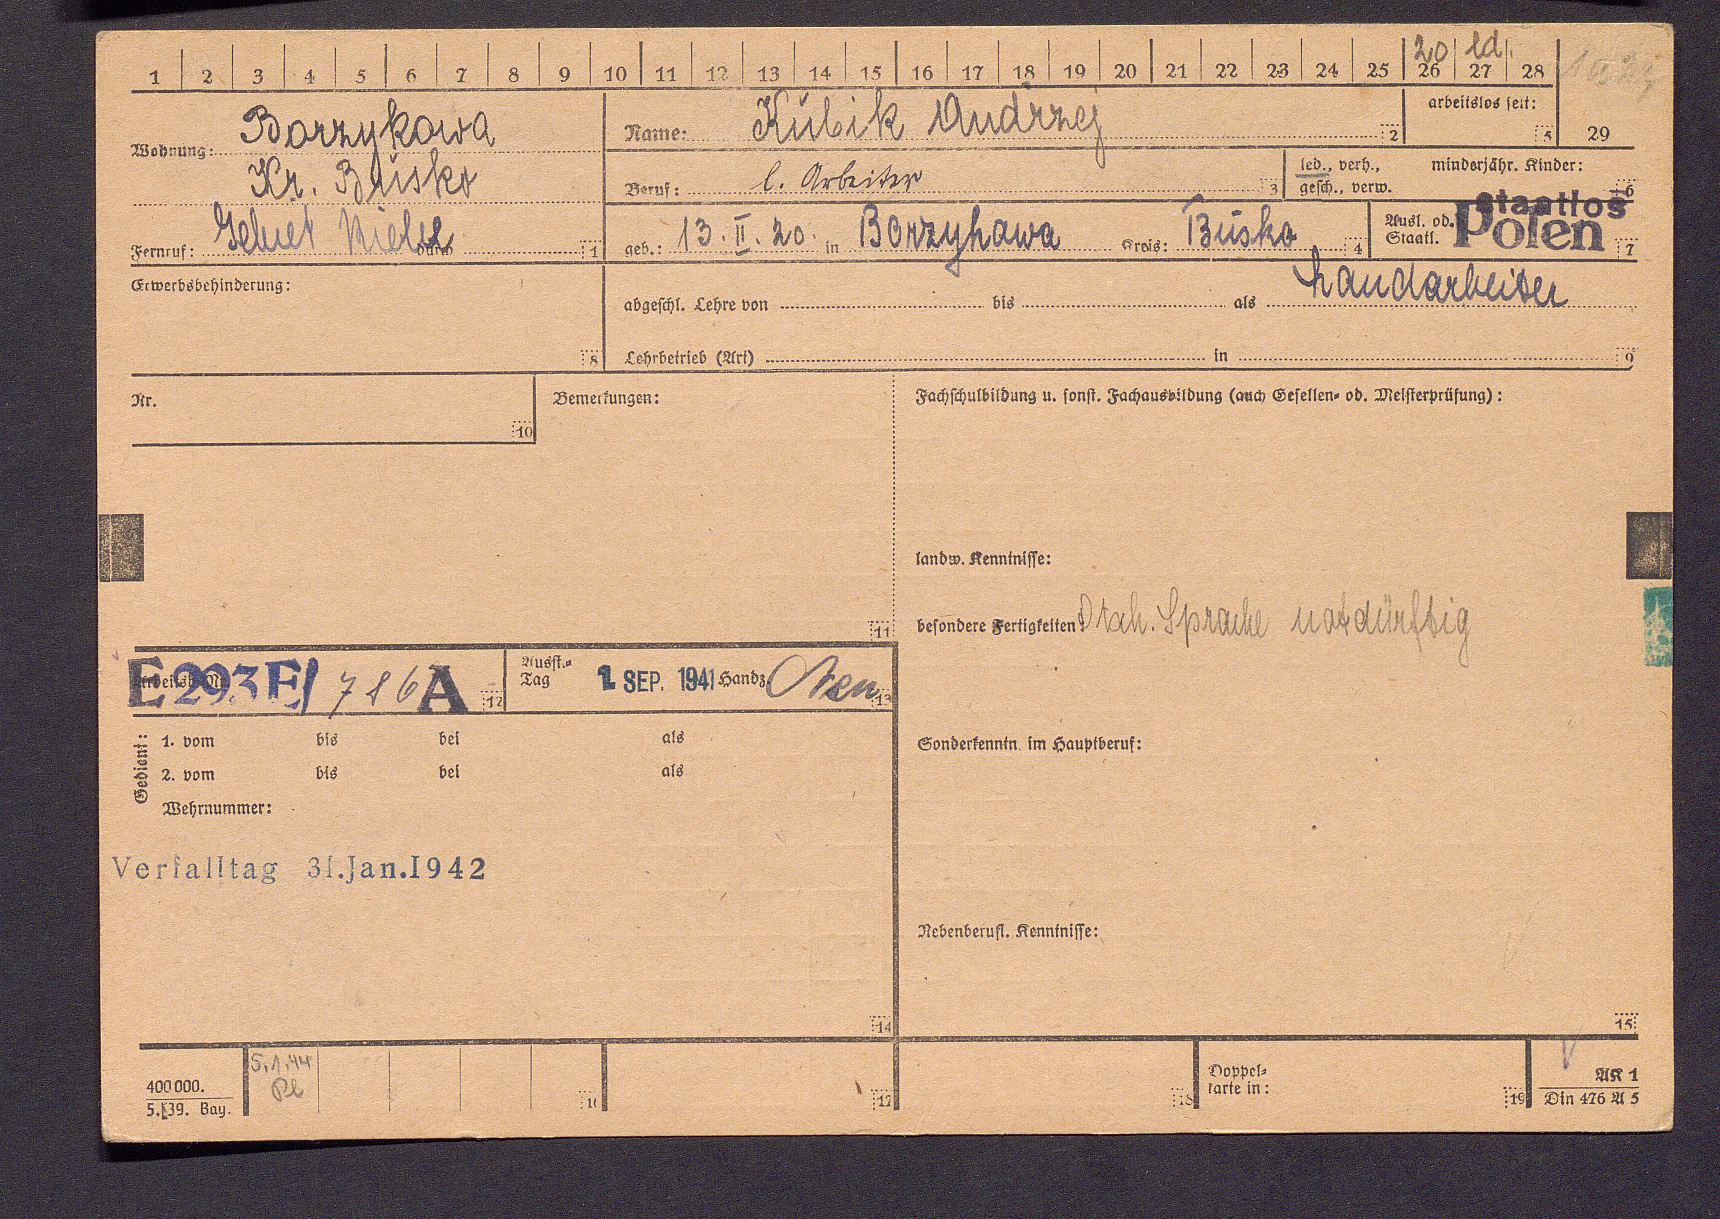 1 2 3 4 5 6 7 8 9 10 11 12 13 14 15 16 17 18 19 20 21 22 23 24 25 26 27 28
20 ld.
Wohnung: Borzykowa
Kr. Busko
Fernruf: 1
Name: Kubik Andrzej 2
arbeitslos seit: 5
29
Beruf: l. Arbeiter 3
led., verh., gesch., verw.
minderjähr. Kinder: 6
geb.: 13. II. 20. in Borzykawa Kreis: Busko 4
Ausl. od. Staatl. Staatlos Polen 7
Erwerbsbehinderung:
8
abgeschl. Lehre von bis als Landarbeiter
Lehrbetrieb (Art) in 9
Nr.
10
Bemerkungen:
11
Fachschulbildung u. sonst. Fachausbildung (auch Gesellen- od. Meisterprüfung):
landw. Kenntnisse:
besondere Fertigkeiten: Dtsch. Sprache notdürftig
E 293 E/ 786 A 12
Ausst.-Tag 1. SEP. 1941 Handz. 13
Gedient:
1. vom bis bei als
2. vom bis bei als
Wehrnummer:
Verfalltag 31.Jan.1942
14
Sonderkenntn. im Hauptberuf:
Nebenberufl. Kenntnisse:
15
400 000.
5. 39. Bay.
5.1.44
16
17
18
Doppel-
karte in:
19
AK 1
Din 476 A 5